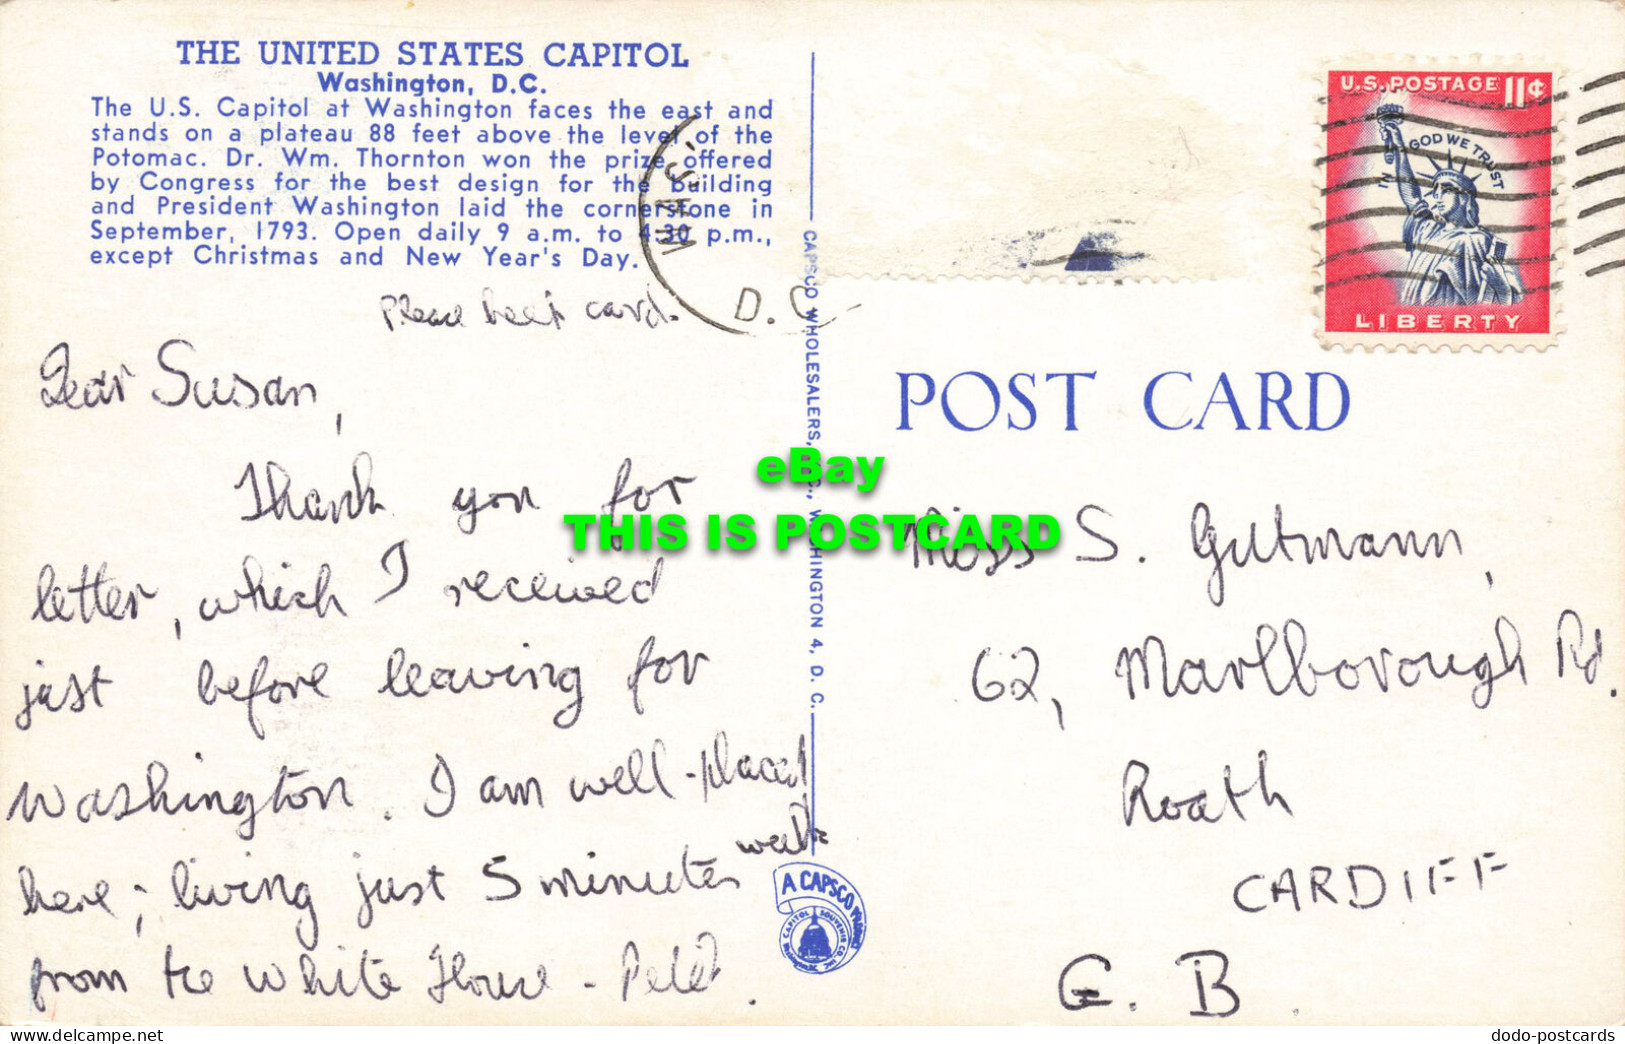 THE UNITED STATES CAPITOL
Washington, D.C.
The U.S. Capitol at Washington faces the east and
stands on a plateau 88 feet above the level of the
Potomac. Dr. Wm. Thornton won the prize offered
by Congress for the best design for the building
and President Washington laid the cornerstone in
September, 1793. Open daily 9 a.m. to 4:30 p.m.,
except Christmas and New Year's Day.
Please keep card.
Dear Susan,
Thank you for
letter, which I received
just before leaving for
Washington. I am well-placed
here; living just 5 minutes walk
from the White House - Peter.
WASH.
D.C.
CAPSCO WHOLESALERS, INC., WASHINGTON 4, D. C.
A CAPSCO PRODUCT
CAPITOL SOUVENIR CO. INC. Washington
eBay
THIS IS POSTCARD
U.S. POSTAGE 11¢
IN GOD WE TRUST
LIBERTY
POST CARD
Miss S. Gutmann,
62, Marlborough Rd.
Roath
CARDIFF
G. B.
dodo-postcards